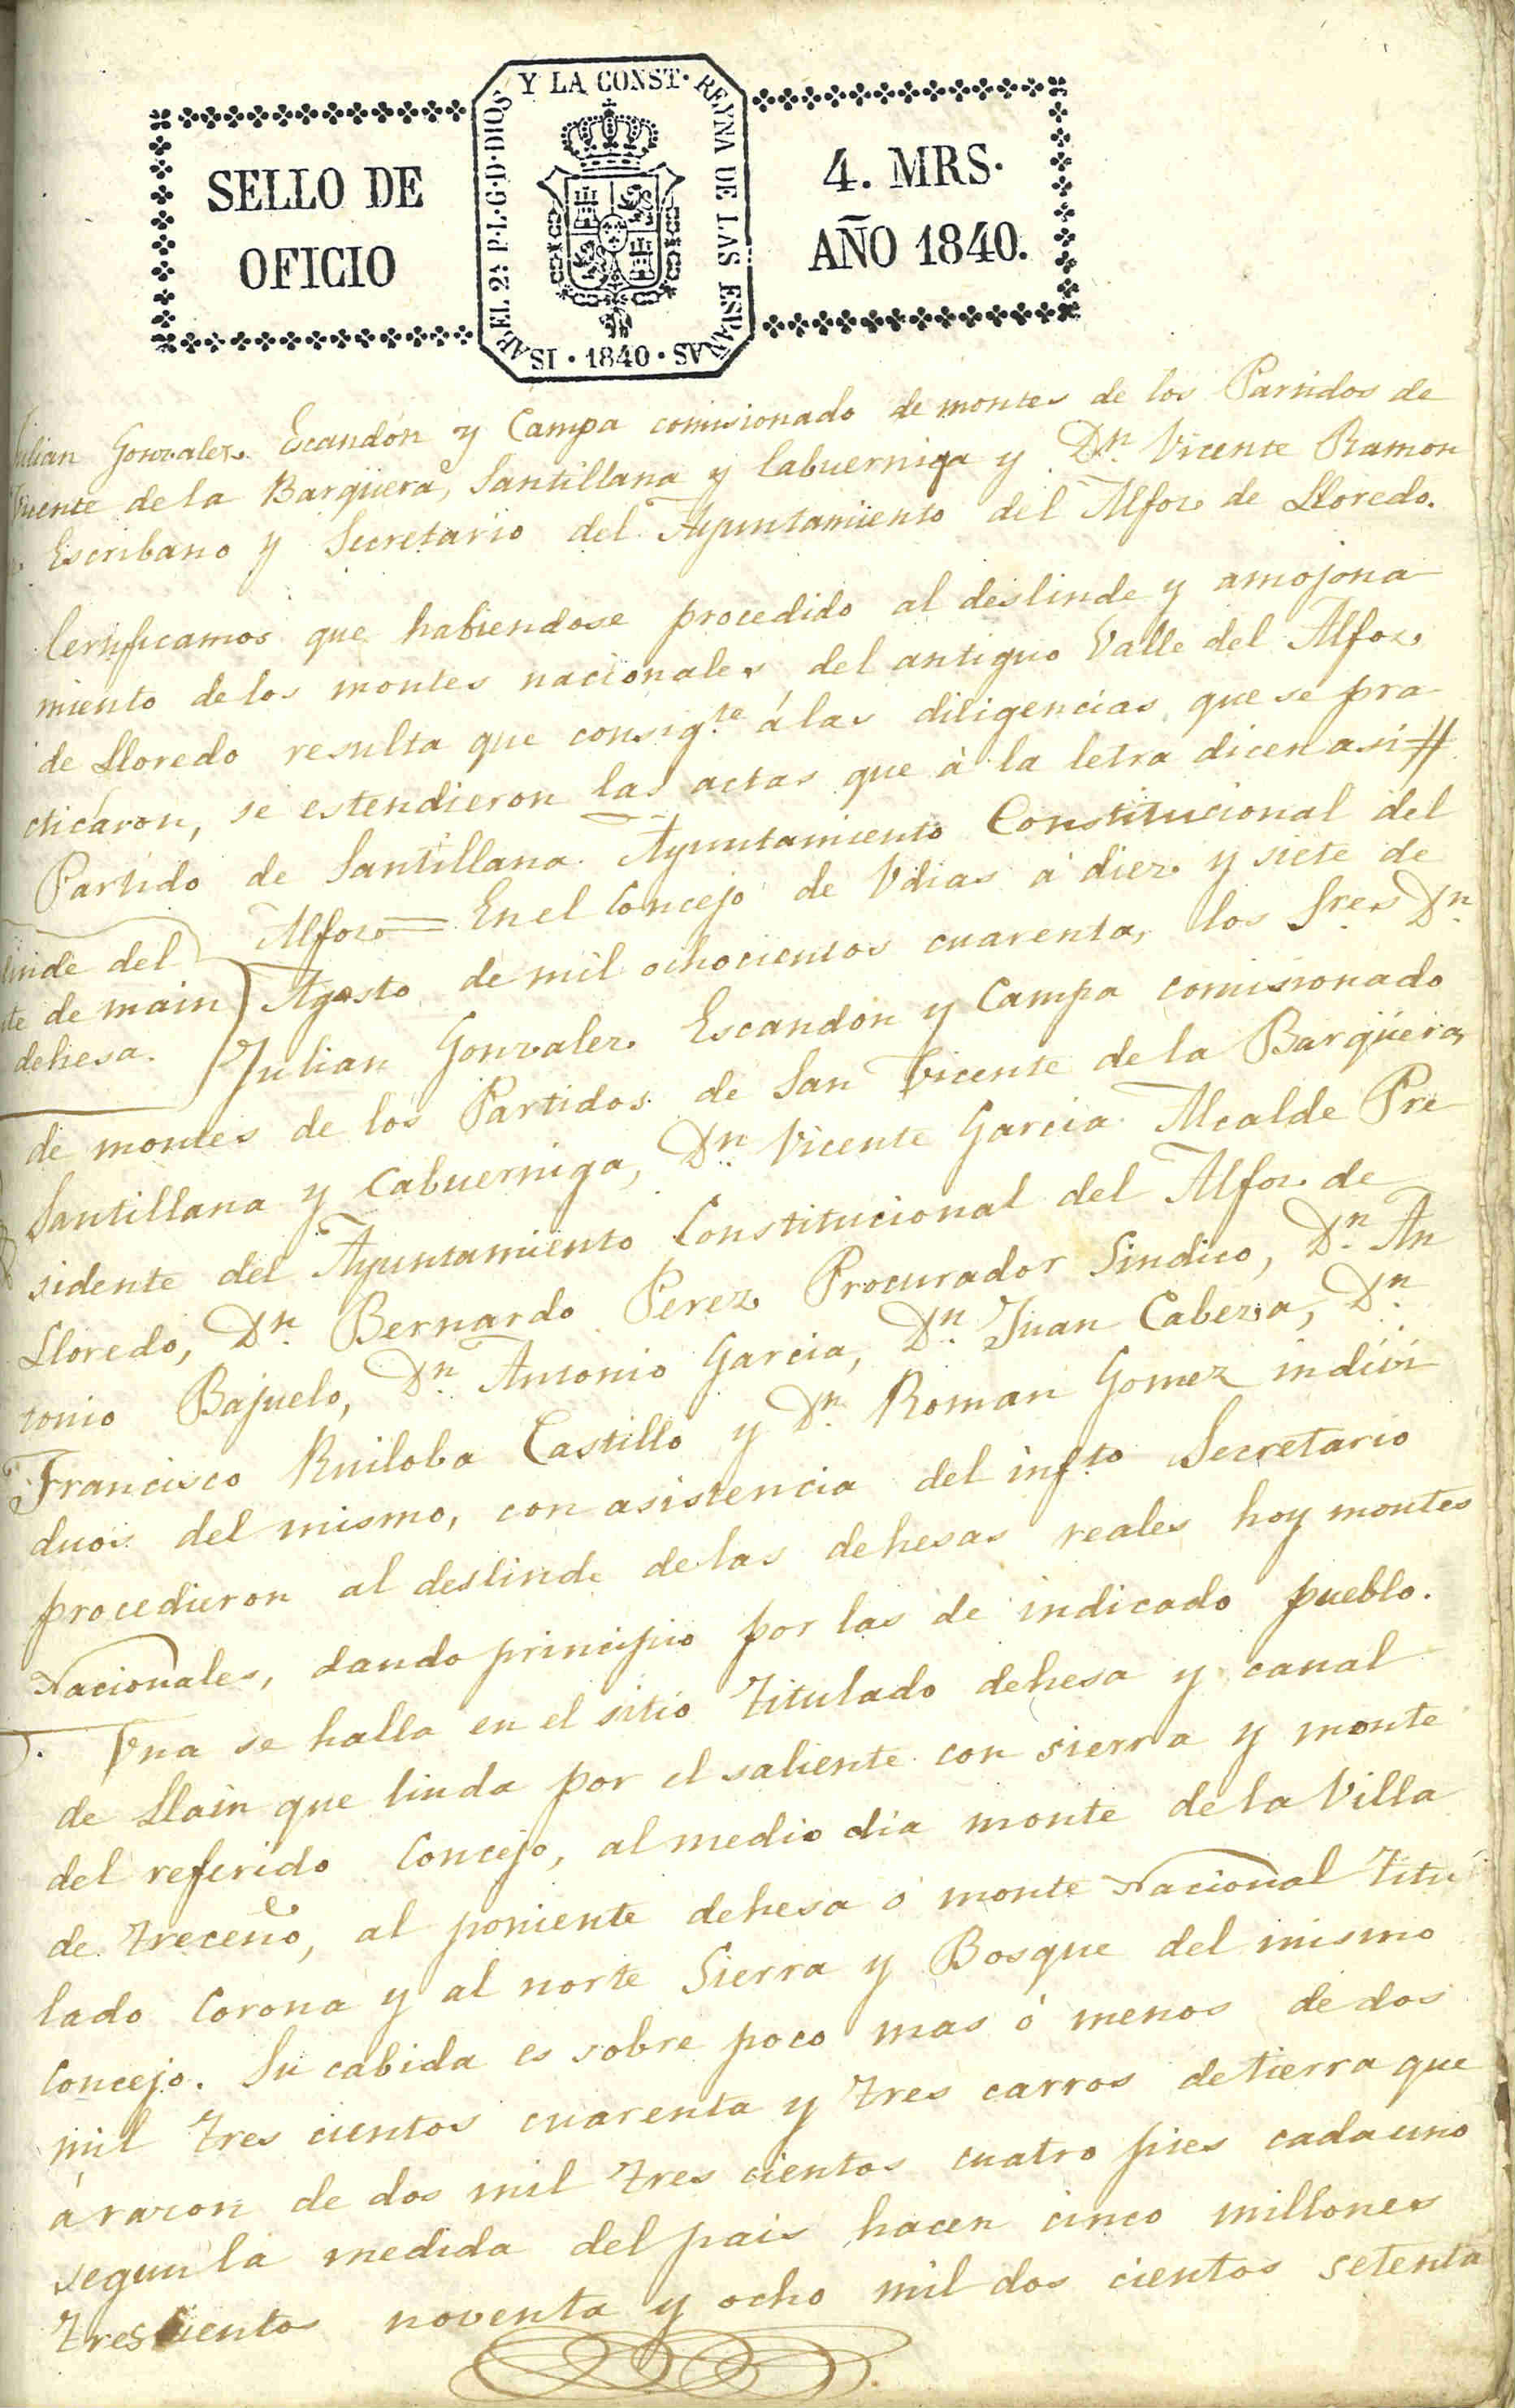 SELLO DE
OFICIO
ISABEL 2ª P.L.G.D.DIOS Y LA CONST. REYNA DE LAS ESPAÑAS
· 1840 ·
4. MRS.
AÑO 1840.
Julian Gonzalez Escandón y Campa comisionado de montes de los Partidos de
Vicente de la Barqüera, Santillana y Cabuerniga y Dn. Vicente Ramon
Escribano y Secretario del Ayuntamiento del Alfoz de Lloredo.
Certificamos que habiendose procedido al deslinde y amojona
miento de los montes nacionales del antiguo Valle del Alfoz
de Lloredo resulta que consigte. á las diligencias que se pra
cticáron, se estendieron las actas que à la letra dicen asi #
Partido de Santillana. Ayuntamiento Constitucional del
Alfoz = En el Concejo de Udias á diez y siete de
linde del
te de main
dehesa.
Agosto de mil ochocientos cuarenta, los Sres. Dn.
Julian Gonzalez Escandon y Campa comisionado
de montes de los Partidos de San Vicente de la Barqüera,
Santillana y Cabuerniga, Dn. Vicente Garcia Alcalde Pre
sidente del Ayuntamiento Constitucional del Alfoz de
Lloredo, Dn. Bernardo Perez Procurador Sindico, Dn. An
tonio Bajuelo, Dn. Antonio Garcia, Dn. Juan Cabeza, Dn.
Francisco Ruiloba Castillo y Dn. Roman Gomez indivi
duos del mismo, con asistencia del infto. Secretario
procedieron al deslinde de las dehesas reales hoy montes
Nacionales, dando principio por las de indicado pueblo.
Una se halla en el sitio titulado dehesa y canal
de Llain que linda por el saliente con sierra y monte
del referido Concejo, al medio dia monte de la Villa
de treceño, al poniente dehesa ó monte Nacional titu
lado Corona y al norte Sierra y Bosque del mismo
Concejo. Su cabida es sobre poco mas ó menos de dos
mil tres cientos cuarenta y tres carros de tierra que
á razon de dos mil tres cientos cuatro pies cada uno
segun la medida del pais hacen cinco millones
tres cientos noventa y ocho mil dos cientos setenta